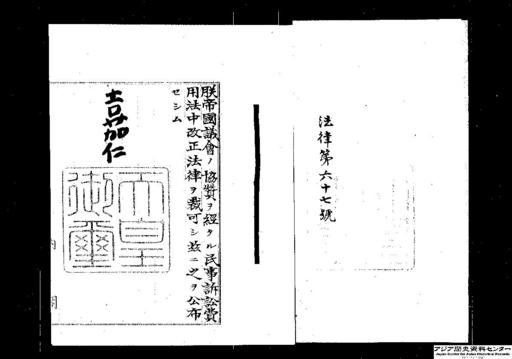 法律第六十七號
朕帝國議會ノ協贊ヲ經タル民事訴訟費
用法中改正法律ヲ裁可シ茲ニ之ヲ公布
セシム
嘉仁
天皇
御璽
内閣
アジア歴史資料センター
Japan Center for Asian Historical Records